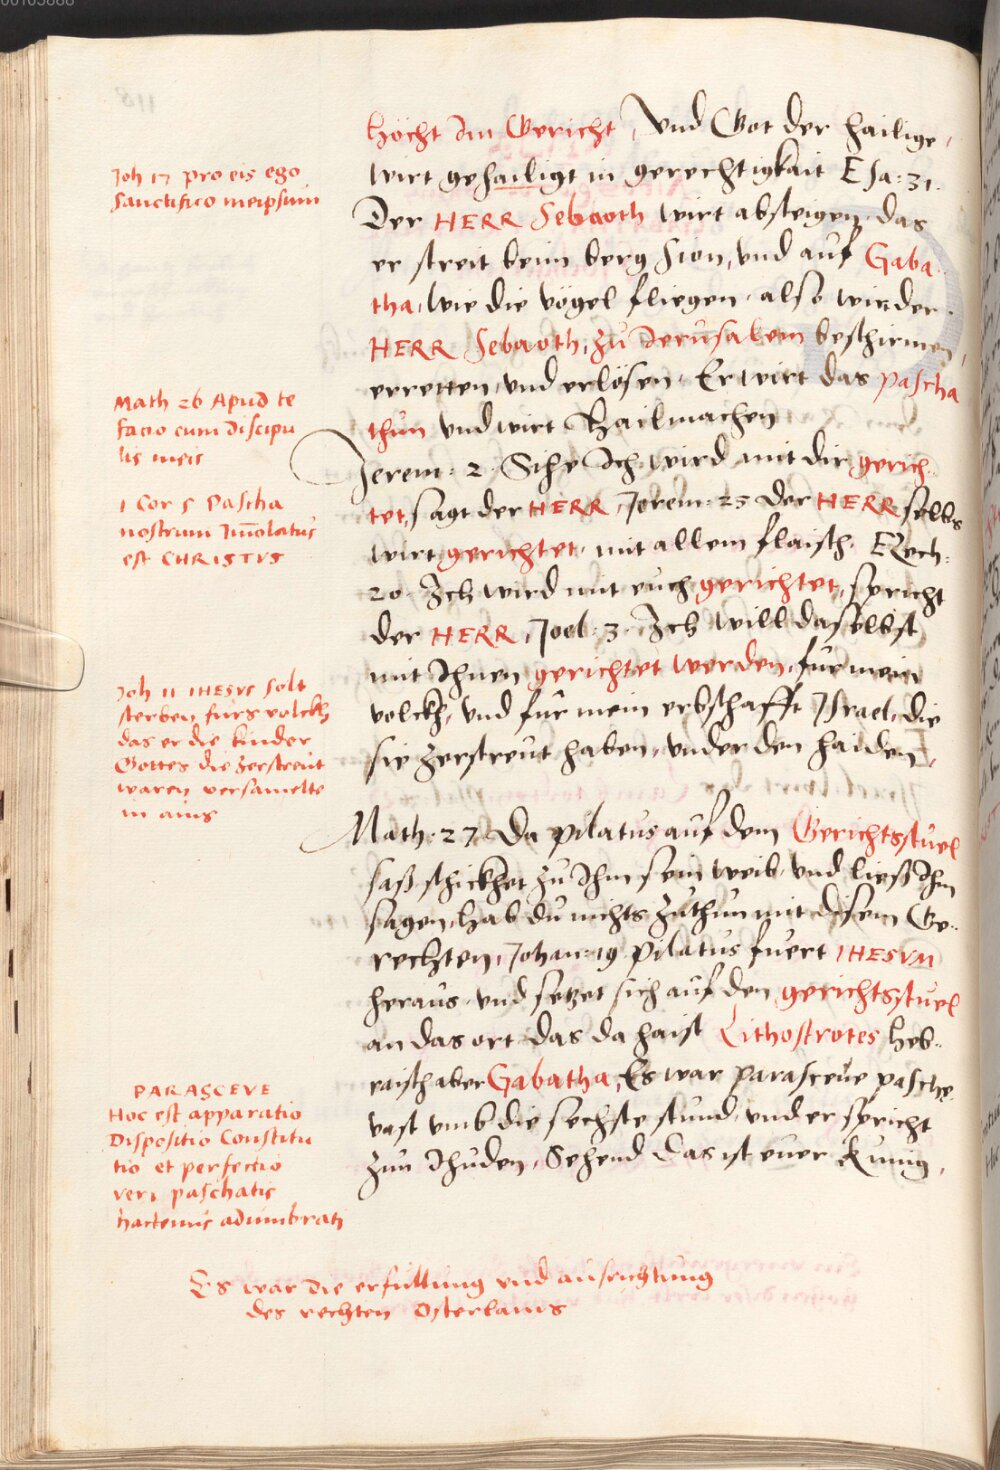 höcht Im Gericht, Und Got der hailige,
wirt gehailigt in gerechtigkait Esa: 31.
Der HERR Sebaoth wirt absteigen, das
er streit beim berg Sion, und auf Gaba-
tha, Wie die vögel fliegen, also wir der
HERR Sebaoth, zu Jerusalem beschirmen,
erretten, und erlösen, Er wirt das pascha
thun und wirt Hailmachen
Jerem: 2. Sihe Ich wird mit dir gerich-
tet, sagt der HERR, Jerem: 25 Der HERR selbs
wirt gerichtet, mit allem flaisch, Ezech:
20. Ich wird mit euch gerichtet, spricht
der HERR, Joel: 3. Ich will daselbst
mit Ihnen gerichtet werden, für mein
volckh, und für mein erbschafft Israel, die
sie zerstreut haben, under den haiden,
Math: 27. Da pilatus auf dem Gerichtsstuel
saß schickhet zu Ihm sein weib, und ließ Ihm
sagen, Hab du nichts zuthun mit disem Ge-
rechten, Johan: 19 pilatus fuert IHESUM
heraus, und setzet sich auf den gerichtsstuel
an das ort, das da haist Lithostrotes heb-
raisch aber Gabatha, Es war parasceue pasche
vast umb die sechste stund, und er spricht
zun Ihuden, Sehend das ist euer Kunig,
Joh 17 pro eis ego
Sanctifico meipsum
Math 26 Apud te
facio cum discipu
lis meis
1 Cor 5 Pascha
nostrum Im̄olatus
est CHRISTVS
Joh 11 IHESVS solt
sterben fürs volckh
das er die kinder
Gottes die zerstreut
waren versamelte
in ains
PARASCEVE
Hoc est apparatio
Dispositio Constitu
tio et perfectio
veri paschatis
hactenus adumbrati
Es war die erfüllung und ausrichtung
des rechten Osterlams